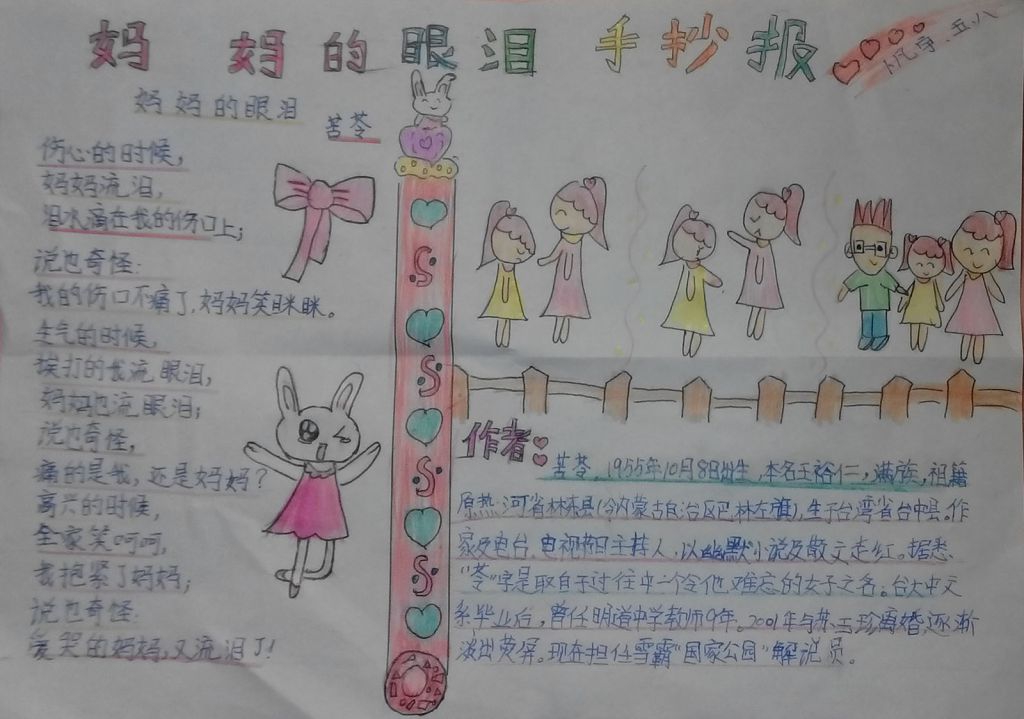 妈妈的眼泪 手抄报
五、八
妈妈的眼泪
苦苓
伤心的时候，
妈妈流泪，
泪水滴在我的伤口上；
说也奇怪：
我的伤口不痛了，妈妈笑眯眯。
生气的时候，
挨打的我流眼泪，
妈妈也流眼泪；
说也奇怪，
痛的是我，还是妈妈？
高兴的时候，
全家笑呵呵，
我抱紧了妈妈；
说也奇怪：
爱哭的妈妈，又流泪了！
作者
苦苓，1955年10月8日出生，本名王裕仁，满族，祖籍
原热河省林东县（今内蒙古自治区巴林左旗），生于台湾省台中县。作
家及电台、电视节目主持人，以幽默小说及散文走红。据悉、
“苓”字是取自于过往中一个令他难忘的女子之名。台大中文
系毕业后，曾任明道中学教师9年。2001年与苏玉珍离婚，逐渐
淡出荧屏。现在担任雪霸“国家公园”解说员。